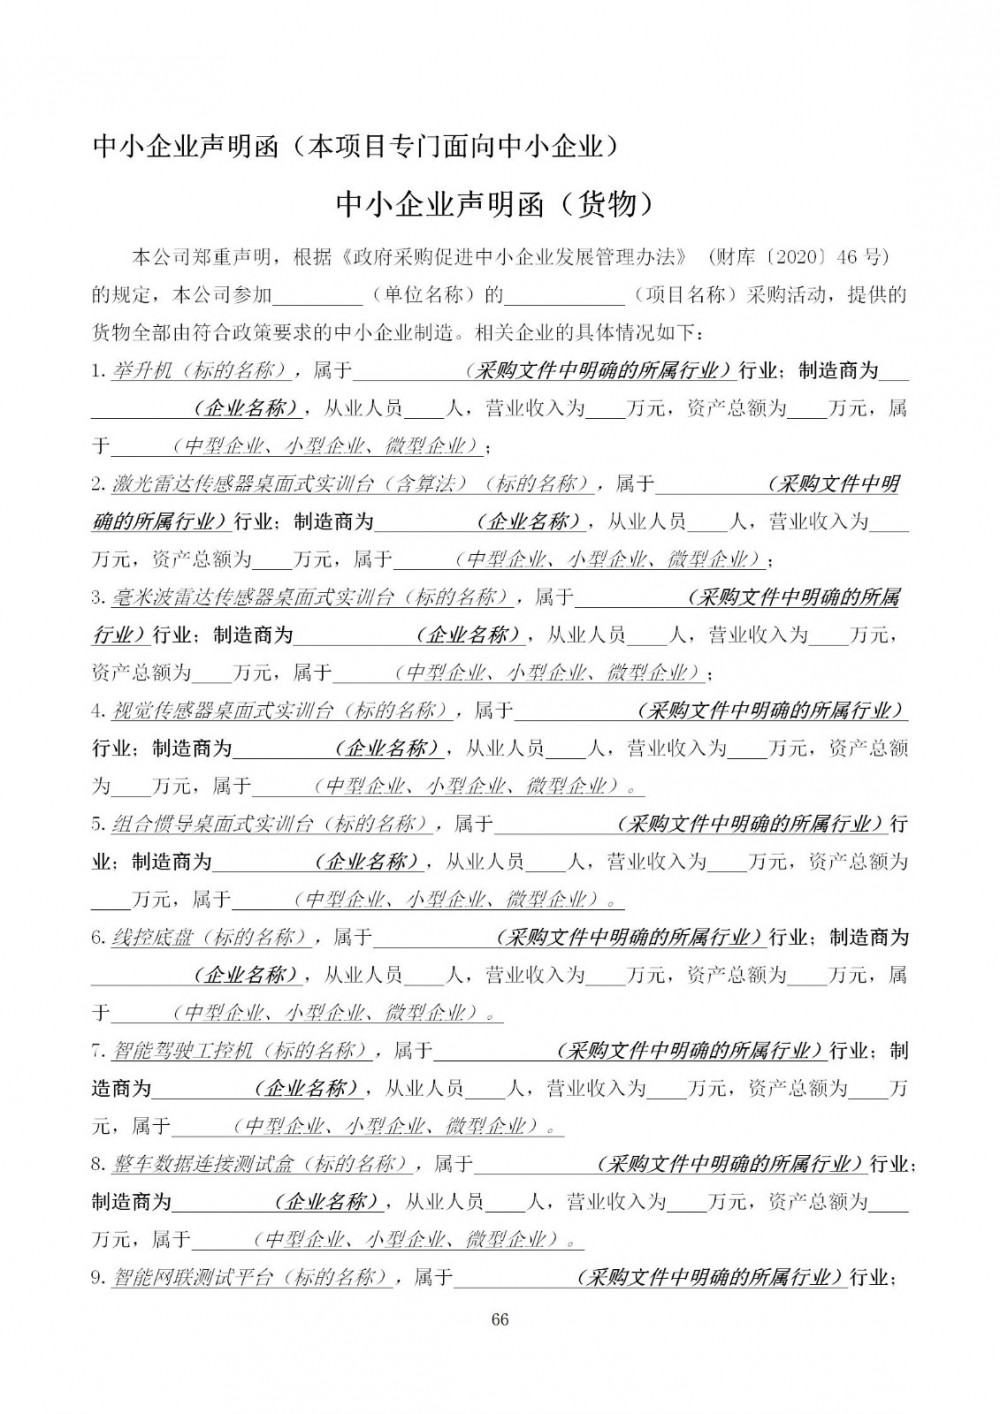 中小企业声明函（本项目专门面向中小企业）
中小企业声明函（货物）
本公司郑重声明，根据《政府采购促进中小企业发展管理办法》 (财库〔2020〕46 号)
的规定，本公司参加_________（单位名称）的____________（项目名称）采购活动，提供的
货物全部由符合政策要求的中小企业制造。相关企业的具体情况如下：
1. 举升机（标的名称），属于___________（采购文件中明确的所属行业）行业；制造商为___
__________（企业名称），从业人员____人，营业收入为____万元，资产总额为____万元，属
于______（中型企业、小型企业、微型企业）；
2. 激光雷达传感器桌面式实训台（含算法）（标的名称），属于___________（采购文件中明
确的所属行业）行业；制造商为__________（企业名称），从业人员____人，营业收入为____
万元，资产总额为____万元，属于______（中型企业、小型企业、微型企业）；
3. 毫米波雷达传感器桌面式实训台（标的名称），属于___________（采购文件中明确的所属
行业）行业；制造商为____________（企业名称），从业人员____人，营业收入为____万元，
资产总额为____万元，属于______（中型企业、小型企业、微型企业）；
4. 视觉传感器桌面式实训台（标的名称），属于____________（采购文件中明确的所属行业）
行业；制造商为__________（企业名称），从业人员____人，营业收入为____万元，资产总额
为____万元，属于______（中型企业、小型企业、微型企业）。
5. 组合惯导桌面式实训台（标的名称），属于____________（采购文件中明确的所属行业）行
业；制造商为__________（企业名称），从业人员____人，营业收入为____万元，资产总额为
____万元，属于______（中型企业、小型企业、微型企业）。
6. 线控底盘（标的名称），属于____________（采购文件中明确的所属行业）行业；制造商为
__________（企业名称），从业人员____人，营业收入为____万元，资产总额为____万元，属
于______（中型企业、小型企业、微型企业）。
7. 智能驾驶工控机（标的名称），属于____________（采购文件中明确的所属行业）行业；制
造商为__________（企业名称），从业人员____人，营业收入为____万元，资产总额为____万
元，属于______（中型企业、小型企业、微型企业）。
8. 整车数据连接测试盒（标的名称），属于____________（采购文件中明确的所属行业）行业；
制造商为__________（企业名称），从业人员____人，营业收入为____万元，资产总额为____
万元，属于______（中型企业、小型企业、微型企业）。
9. 智能网联测试平台（标的名称），属于____________（采购文件中明确的所属行业）行业；
66